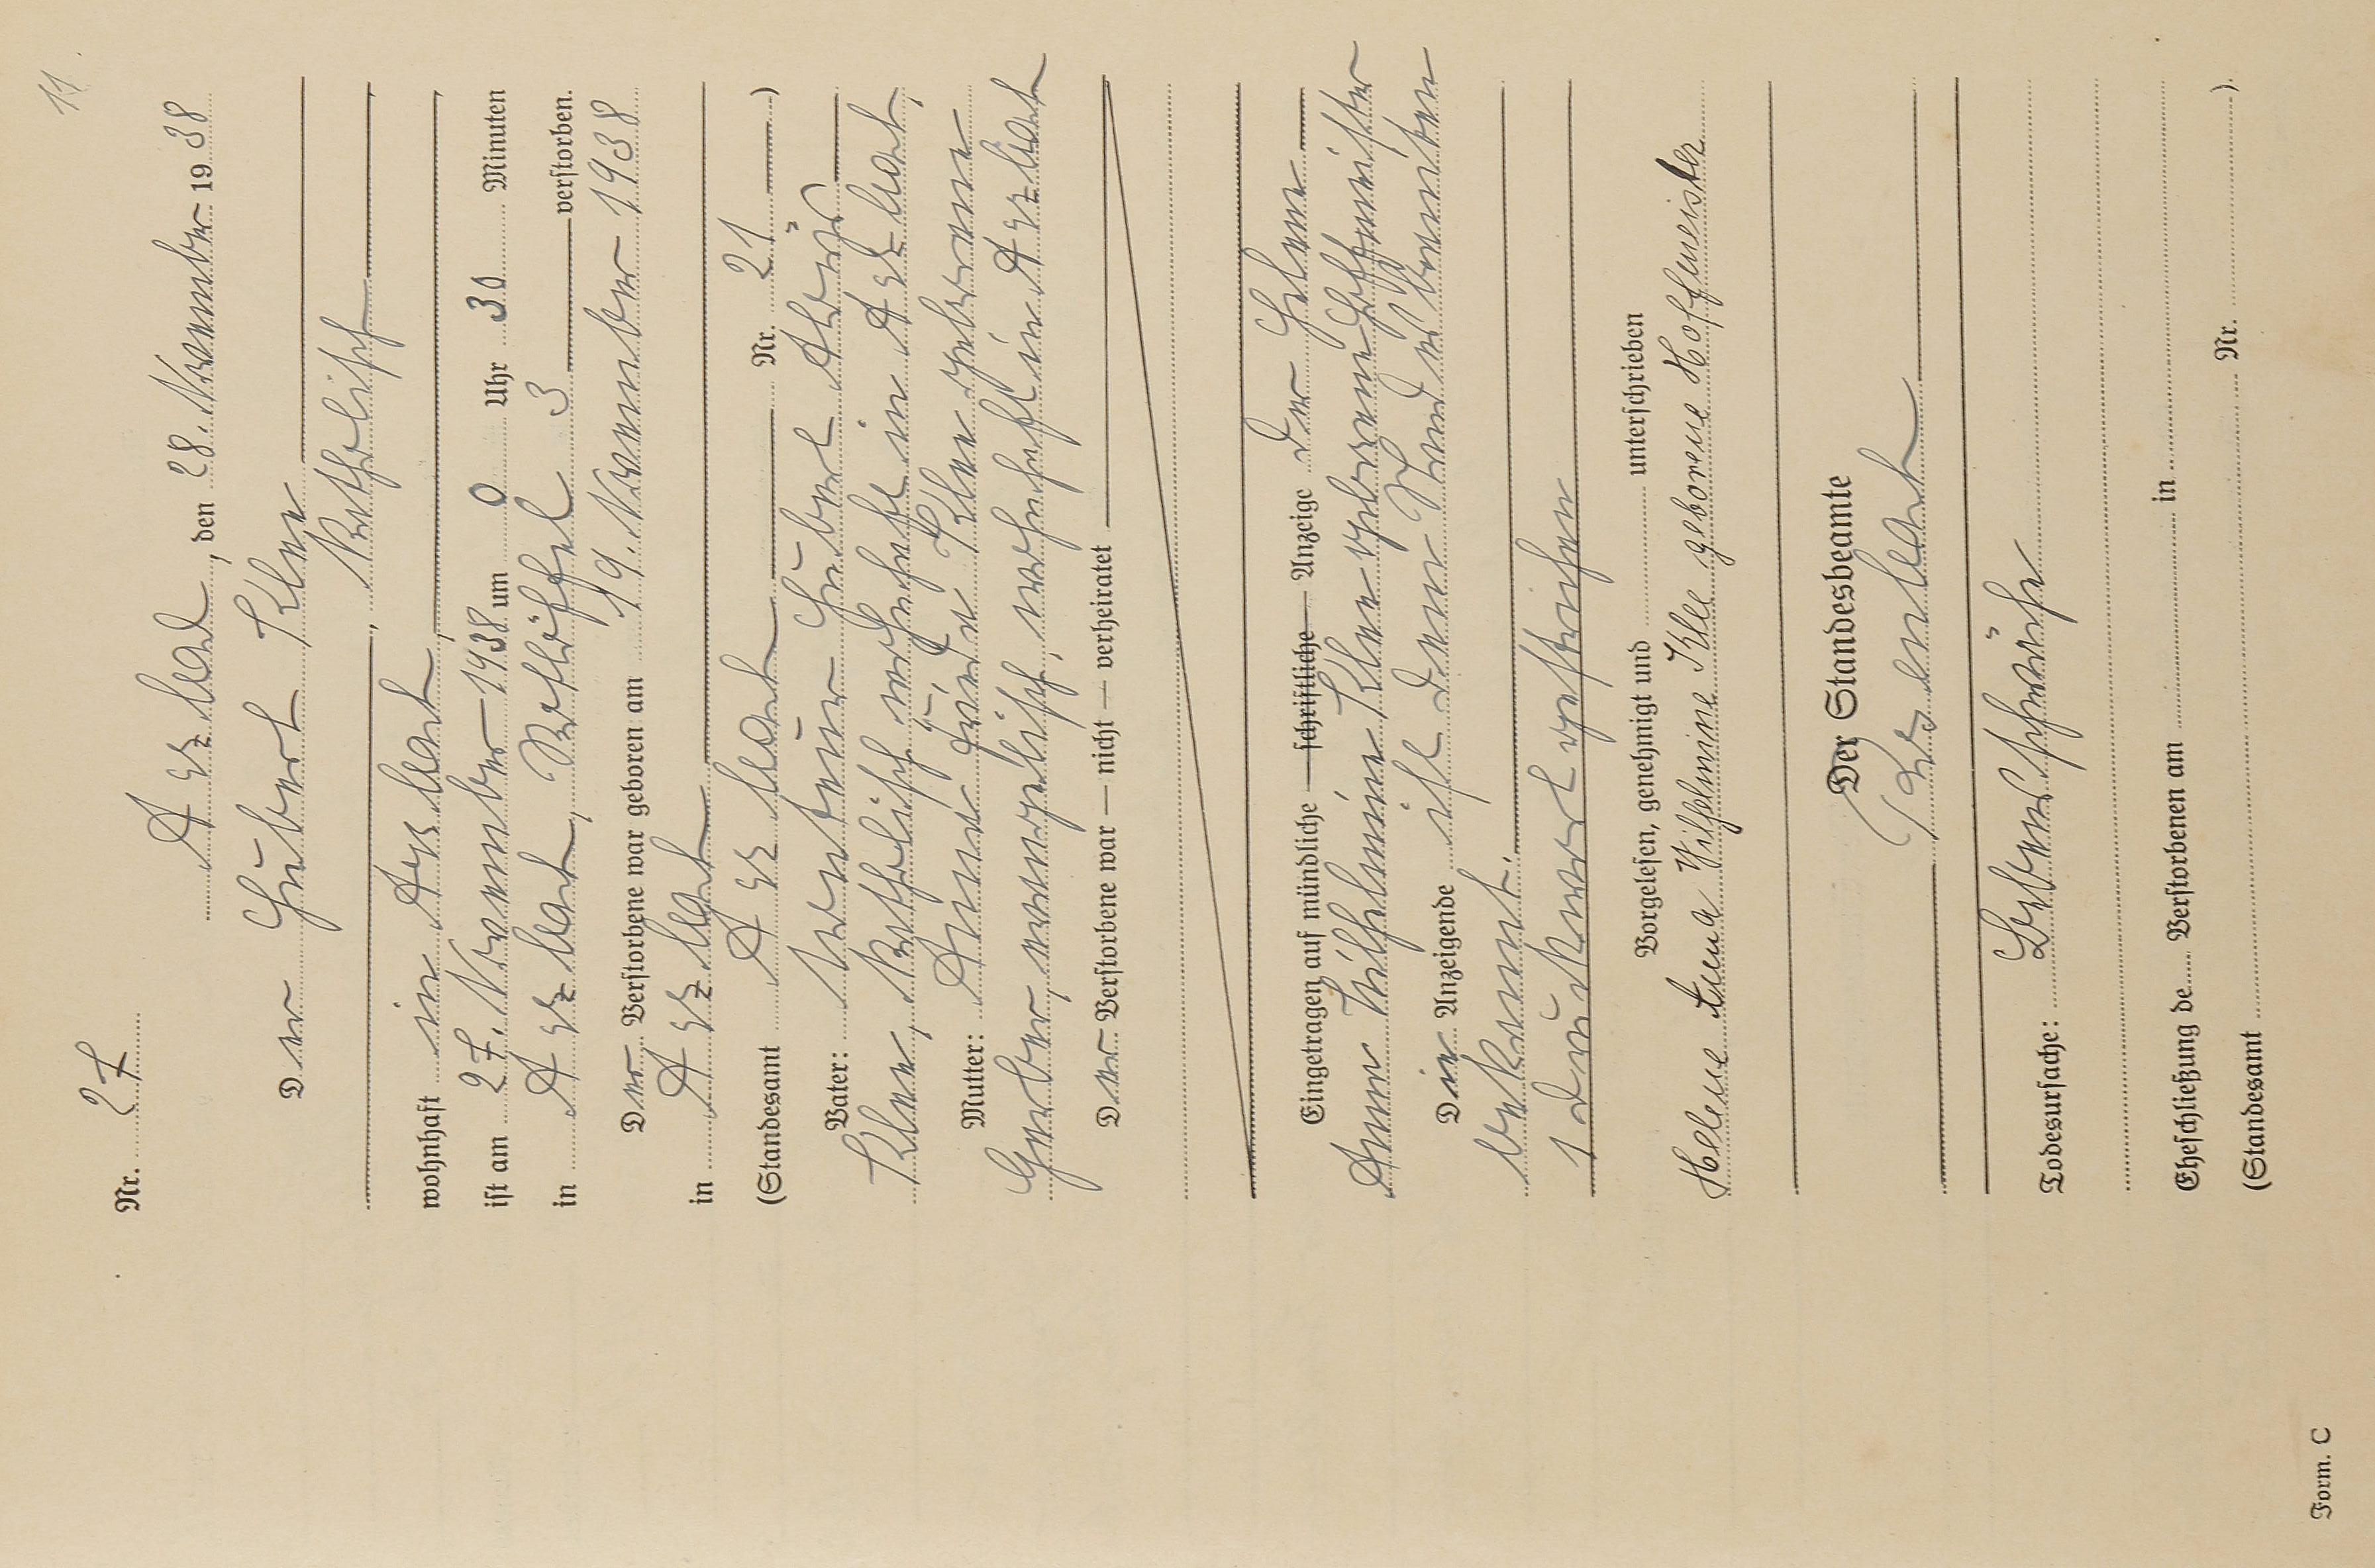 11
Nr. 27
Arzbach, den 28. November 1938
Der Hubert Klee
, katholisch
wohnhaft in Arzbach,
ist am 27. November 1938 um 0 Uhr 30 Minuten
in Arzbach, 3 verstorben.
Der Verstorbene war geboren am 19. November 1938
in Arzbach
(Standesamt Arzbach Nr. 21)
Vater: Monteur Hubert Alois
Klee, katholisch wohnhaft in Arzbach,
Mutter: Anna Frieda Klee geborene
Gerber, evangelisch, wohnhaft in Arzbach
Der Verstorbene war — nicht — verheiratet
Eingetragen auf mündliche — schriftliche — Anzeige der Helene
Anna Wilhelmine Klee geborene Hoffmeister
Die Anzeigende ist dem Standesbeamten
bekannt.
1 Druckwort gestrichen
Vorgelesen, genehmigt und unterschrieben
Helene Anna Wilhelmine Klee geborene Hoffmeister
Der Standesbeamte
Todesursache: Lebensschwäche
Eheschließung de Verstorbenen am in
(Standesamt Nr. ).
Form. C